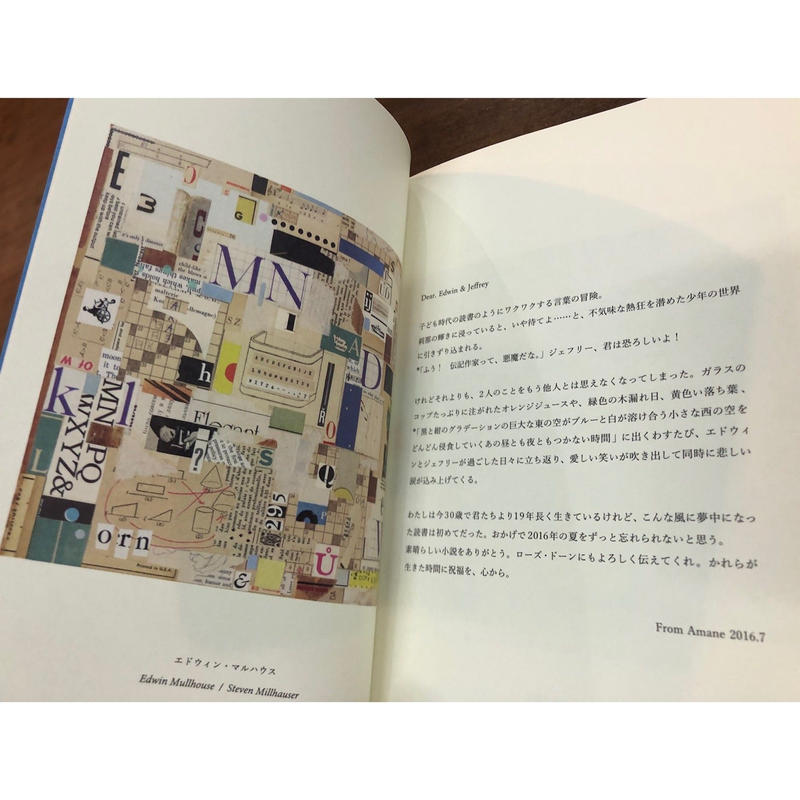 E
3
G
MN
child-like
the blows a
makes the
which holds
SZ
ABCDEFGHIJK
h
A
D
moon
it to
The L
k
l
MN
OPQ
WXYZ&
Elegant
?
S
Q
295
L
orn
&
Ů
Printed in U.S.A.
エドウィン・マルハウス
Edwin Mullhouse / Steven Millhauser
Dear. Edwin & Jeffrey
子ども時代の読書のようにワクワクする言葉の冒険。
刹那の輝きに浸っていると、いや待てよ……と、不気味な熱狂を潜めた少年の世界
に引きずり込まれる。
*「ふう！ 伝記作家って、悪魔だな。」ジェフリー、君は恐ろしいよ！
けれどそれよりも、2人のことをもう他人とは思えなくなってしまった。ガラスの
コップたっぷりに注がれたオレンジジュースや、緑色の木漏れ日、黄色い落ち葉、
*「黒と紺のグラデーションの巨大な東の空がブルーと白が溶け合う小さな西の空を
どんどん侵食していくあの昼とも夜ともつかない時間」に出くわすたび、エドウィ
ンとジェフリーが過ごした日々に立ち返り、愛しい笑いが吹き出して同時に悲しい
涙が込み上げてくる。
わたしは今30歳で君たちより19年長く生きているけれど、こんな風に夢中になっ
た読書は初めてだった。おかげで2016年の夏をずっと忘れられないと思う。
素晴らしい小説をありがとう。ローズ・ドーンにもよろしく伝えてくれ。かれらが
生きた時間に祝福を、心から。
From Amane 2016.7